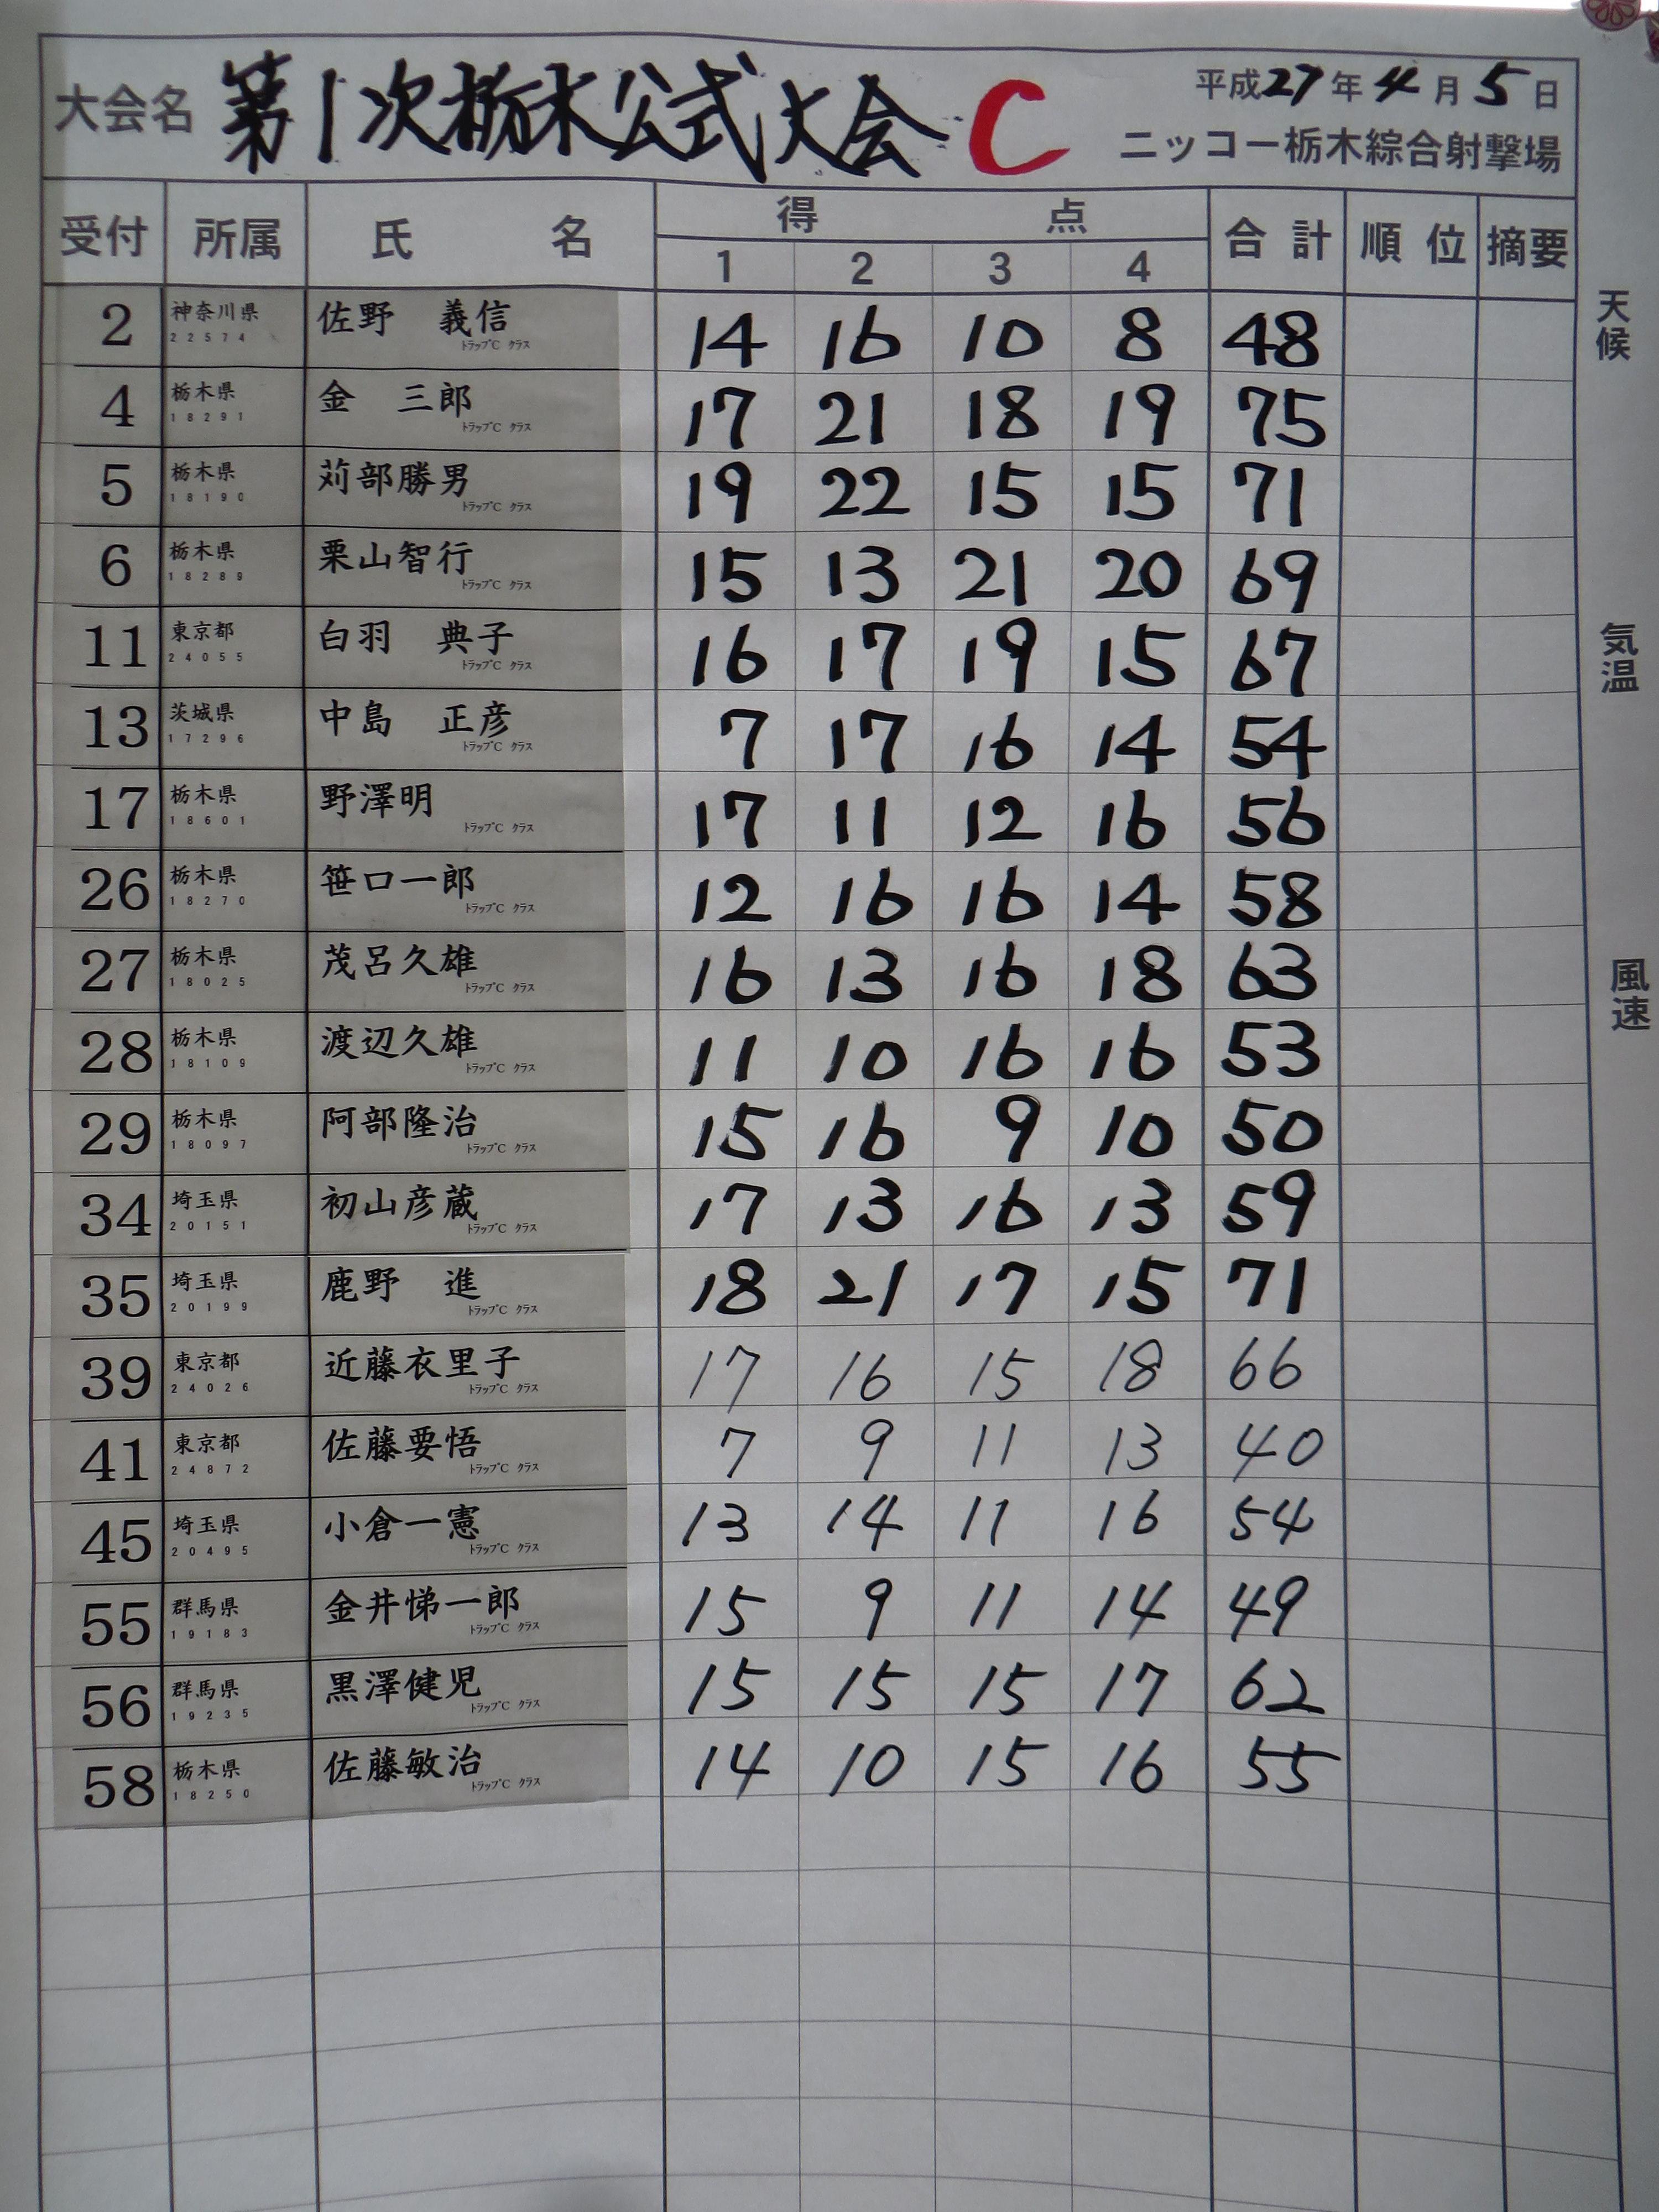 大会名 第1次栃木公式大会 C 平成27年4月5日
ニッコー栃木綜合射撃場
受付 所属 氏名 得点 合計 順位 摘要
1 2 3 4
2 神奈川県 22574 佐野 義信 トラップC クラス 14 16 10 8 48
4 栃木県 18291 金 三郎 トラップC クラス 17 21 18 19 75
5 栃木県 18190 苅部勝男 トラップC クラス 19 22 15 15 71
6 栃木県 18289 栗山智行 トラップC クラス 15 13 21 20 69
11 東京都 24055 白羽 典子 トラップC クラス 16 17 19 15 67
13 茨城県 17296 中島 正彦 トラップC クラス 7 17 16 14 54
17 栃木県 18601 野澤明 トラップC クラス 17 11 12 16 56
26 栃木県 18270 笹口一郎 トラップC クラス 12 16 16 14 58
27 栃木県 18025 茂呂久雄 トラップC クラス 16 13 16 18 63
28 栃木県 18109 渡辺久雄 トラップC クラス 11 10 16 16 53
29 栃木県 18097 阿部隆治 トラップC クラス 15 16 9 10 50
34 埼玉県 20151 初山彦蔵 トラップC クラス 17 13 16 13 59
35 埼玉県 20199 鹿野 進 トラップC クラス 18 21 17 15 71
39 東京都 24026 近藤衣里子 トラップC クラス 17 16 15 18 66
41 東京都 24872 佐藤要悟 トラップC クラス 7 9 11 13 40
45 埼玉県 20495 小倉一憲 トラップC クラス 13 14 11 16 54
55 群馬県 19183 金井悌一郎 トラップC クラス 15 9 11 14 49
56 群馬県 19235 黒澤健児 トラップC クラス 15 15 15 17 62
58 栃木県 18250 佐藤敏治 トラップC クラス 14 10 15 16 55
天候
気温
風速